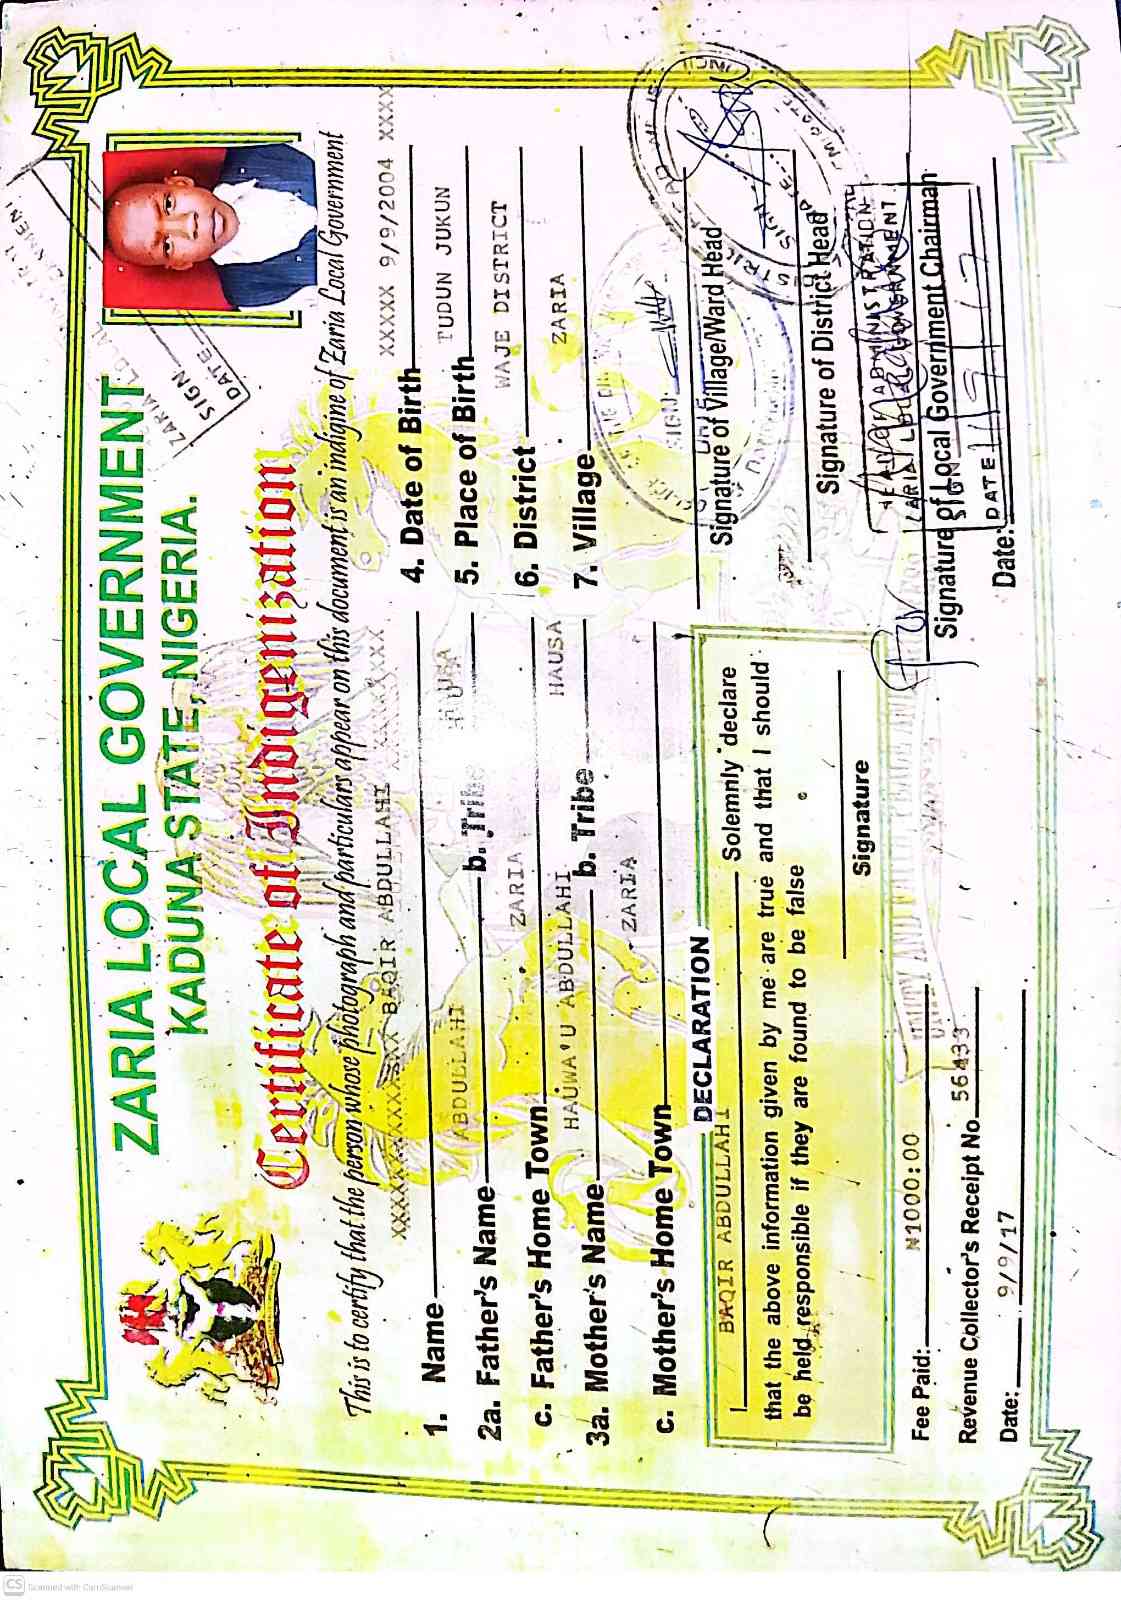 ZARIA LOCAL GOVERNMENT
KADUNA STATE, NIGERIA.
Certificate of Indigenization
This is to certify that the person whose photograph and particulars appear on this document is an indigine of Zaria Local Government
1. Name BAQIR ABDULLAHI
2a. Father's Name ABDULLAHI b. Tribe HAUSA
c. Father's Home Town ZARIA
3a. Mother's Name HAUWA'U ABDULLAHI b. Tribe HAUSA
c. Mother's Home Town ZARIA
4. Date of Birth XXXXX 9/9/2004 XXXX
5. Place of Birth TUDUN JUKUN
6. District WAJE DISTRICT
7. Village ZARIA
DECLARATION
I BAQIR ABDULLAHI Solemnly declare
that the above information given by me are true and that I should
be held responsible if they are found to be false
Signature
Signature of Village/Ward Head
Signature of District Head
Signature of Local Government Chairman
Date:
Fee Paid: N1000:00
Revenue Collector's Receipt No. 56433
Date: 9/9/17
ZARIA LOCAL
SIGN
DATE
SIGN
DATE
HEAD OF ADMINISTRATION
ZARIA LOCAL GOVERNMENT
SIGN
DATE
CS Scanned with CamScanner